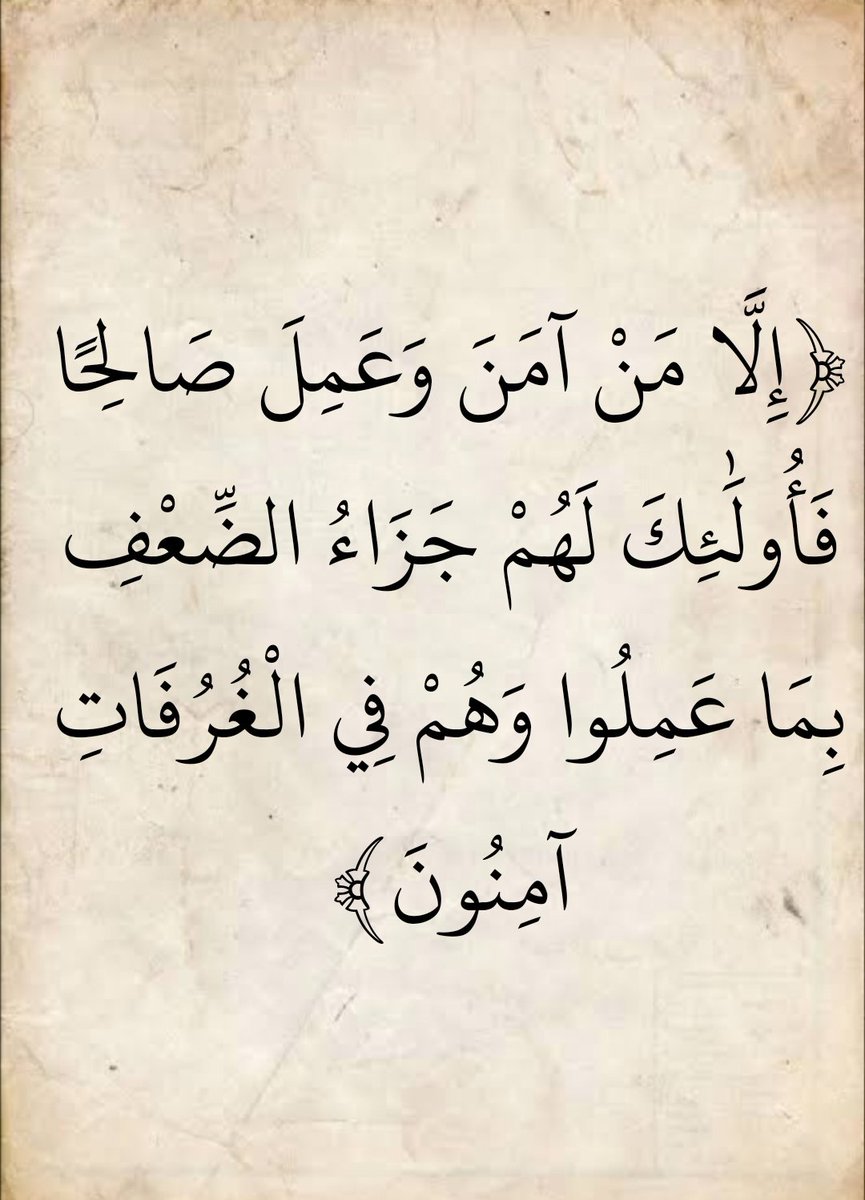 ﴿إِلَّا مَنْ آمَنَ وَعَمِلَ صَالِحًا
فَأُولَٰئِكَ لَهُمْ جَزَاءُ الضِّعْفِ
بِمَا عَمِلُوا وَهُمْ فِي الْغُرُفَاتِ
آمِنُونَ﴾